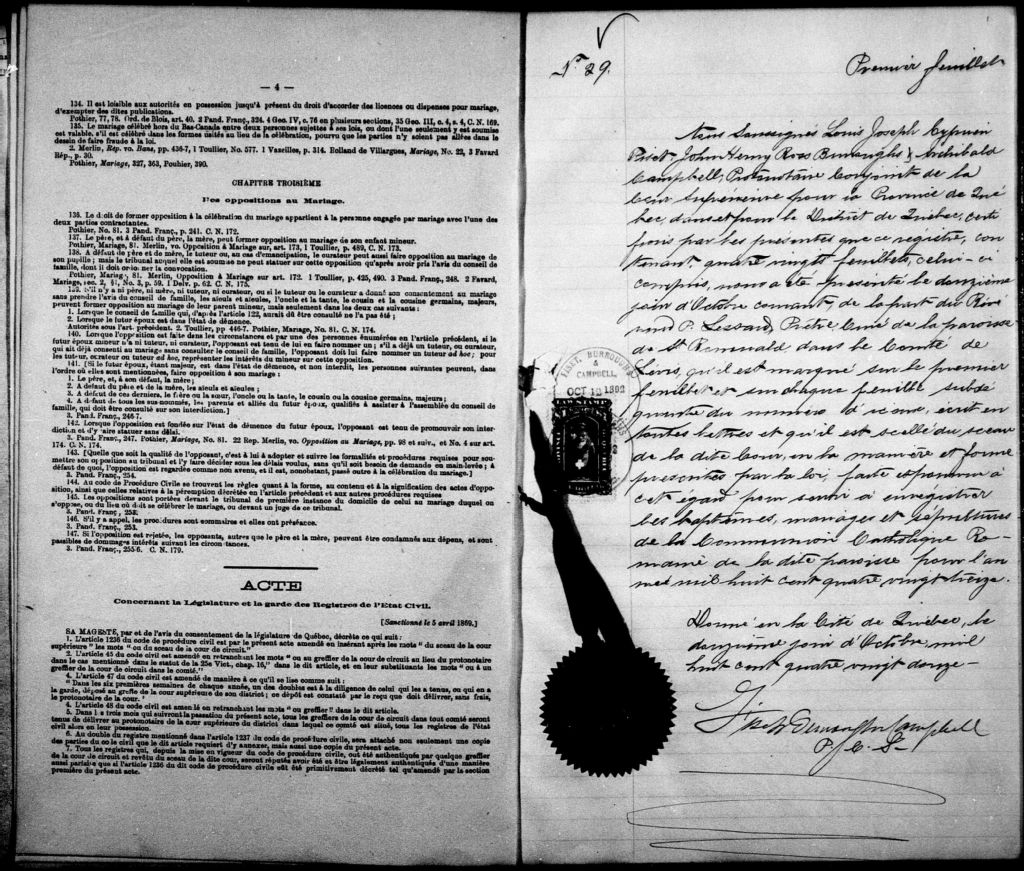 — 4 —
134. Il est loisible aux autorités en possession jusqu'à présent du droit d'accorder des licences ou dispenses pour mariage,
d'exempter des dites publications.
Pothier, 77, 78. Ord. de Blois, art. 40. 2 Pand. Franç., 324. 4 Geo. IV, c. 76 en plusieurs sections, 35 Geo. III, c. 4, s. 4, C. N. 169.
135. Le mariage célébré hors du Bas-Canada entre deux personnes sujettes à ses lois, ou dont l'une seulement y est soumise
est valable, s'il est célébré dans les formes usités au lieu de la célébration, pourvu que les parties n'y soient pas allées dans le
dessein de faire fraude à la loi.
2. Merlin, Rep. vo. Bans, pp. 436-7, 1 Toullier, No. 577. 1 Vazeilles, p. 314. Rolland de Villargues, Mariage, No. 22, 3 Favard
Rép., p. 30.
Pothier, Mariage, 327, 363, Pouhier, 390.
CHAPITRE TROISIÈME
Des oppositions au Mariage.
136. Le droit de former opposition à la célébration du mariage appartient à la personne engagée par mariage avec l'une des
deux parties contractantes.
Pothier, No. 81. 3 Pand. Franç., p. 241. C. N. 172.
137. Le père, et à défaut du père, la mère, peut former opposition au mariage de son enfant mineur.
Pothier, Mariage, 81. Merlin, vo. Opposition à Mariage sur art. 173, 1 Toullier, p. 489, C. N. 173.
138. A défaut de père et de mère, le tuteur ou, au cas d'émancipation, le curateur peut aussi faire opposition au mariage de
son pupille; mais le tribunal auquel elle est soumise ne peut statuer sur cette opposition qu'après avoir pris l'avis du conseil de
famille, dont il doit ordonner la convocation.
Pothier, Mariage, 81. Merlin, Opposition à Mariage sur art. 172. 1 Toullier, p. 425, 490. 3 Pand. Franç., 248. 2 Favard,
Mariage, sec. 2, §1, No. 3, p. 59. 1 Delv. p. 62. C. N. 175.
139. S'il n'y a ni père, ni mère, ni tuteur, ni curateur, ou si le tuteur ou le curateur a donné son consentement au mariage
sans prendre l'avis du conseil de famille, les aïeuls et aïeules, l'oncle et la tante, le cousin et la cousine germains, majeurs,
peuvent former opposition au mariage de leur parent mineur, mais seulement dans les deux cas suivants :
1. Lorsque le conseil de famille qui, d'après l'article 122, aurait dû être consulté ne l'a pas été ;
2. Lorsque le futur époux est dans l'état de démence.
Autorités sous l'art. précédent. 2. Toullier, pp 446-7. Pothier, Mariage, No. 81. C. N. 174.
140. Lorsque l'opposition est faite dans les circonstances et par une des personnes énumérées en l'article précédent, si le
futur époux mineur n'a ni tuteur, ni curateur, l'opposant est tenu de lui en faire nommer un ; s'il a déjà un tuteur, ou curateur
qui ait déjà consenti au mariage sans consulter le conseil de famille, l'opposant doit lui faire nommer un tuteur ad hoc ; pour
les tuteur, curateur ou tuteur ad hoc, représenter les intérêts du mineur sur cette opposition.
141. [Si le futur époux, étant majeur, est dans l'état de démence, et non interdit, les personnes suivantes peuvent, dans
l'ordre où elles sont mentionnées, faire opposition à son mariage :
1. Le père, et, à son défaut, la mère ;
2. A défaut du père et de la mère, les aïeuls et aïeules ;
3. A défaut de ces derniers, le frère ou la sœur, l'oncle ou la tante, le cousin ou la cousine germains, majeurs ;
4. A défaut de tous les sus-nommés, les parents et alliés du futur époux, qualifiés à assister à l'assemblée du conseil de
famille, qui doit être consulté sur son interdiction.]
3. Pand. Franç., 246-7.
142. Lorsque l'opposition est fondée sur l'état de démence du futur époux, l'opposant est tenu de promouvoir son inter-
diction et d'y faire statuer sans délai.
3. Pand. Franç., 247. Pothier, Mariage, No. 81. 22 Rep. Merlin, vo. Opposition au Mariage, pp. 98 et suiv., et No. 4 sur art.
174. C. N. 174.
143. [Quelle que soit la qualité de l'opposant, c'est à lui à adopter et suivre les formalités et procédures requises pour sou-
mettre son opposition au tribunal et l'y faire décider sous les délais voulus, sans qu'il soit besoin de demande en main-levée ; à
défaut de quoi, l'opposition est regardée comme non avenu, et il est, nonobstant, passé outre à la célébration du mariage.]
3. Pand. Franç., 254.
144. Au code de Procédure Civile se trouvent les règles quant à la forme, au contenu et à la signification des actes d'oppo-
sition, ainsi que celles relatives à la péremption décrétée en l'article précédent et aux autres procédures requises
145. Les oppositions sont portées devant le tribunal de première instance du domicile de celui au mariage duquel on
s'oppose, ou du lieu où doit se célébrer le mariage, ou devant un juge de ce tribunal.
3. Pand. Franç., 253.
146. S'il y a appel, les procédures sont sommaires et elles ont préséance.
3. Pand. Franç., 253.
147. Si l'opposition est rejetée, les opposants, autres que le père et la mère, peuvent être condamnés aux dépens, et sont
passibles de dommages intérêts suivant les circonstances.
3. Pand. Franç., 255-6. C. N. 179.
ACTE
Concernant la Législature et la garde des Registres de l'Etat Civil.
[Sanctionné le 5 avril 1869.]
SA MAGESTÉ, par et de l'avis du consentement de la législature de Québec, décrète ce qui suit :
1. L'article 1236 du code de procédure civil est par le présent acte amendé en insérant après les mots " du sceau de la cour
supérieure " les mots " ou du sceau de la cour de circuit."
2. L'article 45 du code civil est amendé en retranchant les mots " ou au greffier de la cour de circuit ou au protonotaire
dans le cas mentionné dans le statut de la 25e Vict., chap. 16," dans le dit article, et en leur substituants les mots " ou à un
greffier de la cour de circuit dans le comté."
3. L'article 47 du code civil est amendé de manière à ce qu'il se lise comme suit :
" Dans les six premières semaines de chaque année, un des doubles est à la diligence de celui qui les a tenus, ou qui en a
la garde, déposé au greffe de la cour supérieure de son district ; ce dépôt est constaté par le reçu que doit délivrer, sans frais,
le protonotaire de la cour."
4. L'article 48 du code civil est amendé en retranchant les mots " ou greffier " dans le dit article.
5. Dans les trois mois qui suivront la passation du présent acte, tous les greffiers de la cour de circuit dans tout comté seront
tenus de délivrer au protonotaire de la cour supérieure du district dans lequel ce comté est situé, tous les registres de l'état
civil alors en leur possession.
6. Au double du registre mentionné dans l'article 1237 du code de procédure civile, sera attaché non seulement une copie
des parties du code civil que le dit article requiert d'y annexer, mais aussi une copie du présent acte.
7. Tous les registres qui, depuis la mise en vigueur du code de procédure civile, ont été authentiqués par quelque greffier
de la cour de circuit et revêtu du sceau de la dite cour, seront réputés avoir été et être légalement authentiqués d'une manière
aussi parfaite que si l'article 1236 du dit code de procédure civile eût été primitivement décrété tel qu'amendé par la section
première du présent acte.
No. 29.
Premier feuillet
Nous Soussignés Louis Joseph Cyprien
Fiset, John Henry Ross Burroughs & Archibald
Campbell, Protonotaire Conjoint de la
Cour Supérieure pour la Province de Qué
bec, dans et pour le District de Québec, certi
fions par les présentes que ce régistre, con
tenant quatre vingt feuillets, celui-ci
compris, nous a été présenté le douzième
jour d'Octobre courant, de la part du Révé
rend P. Lessard, Prêtre Curé de la paroisse
de St Romuald dans le Comté de
Lévis, qu'il est marqué sur le premier
feuillet et sur chaque feuille subsé
quente du numéro la écrit en
toutes lettres et qu'il est scellé du sceau
de la dite Cour, en la manière et forme
prescrites par la loi, faite et pourvue à
cet égard pour servir à enregistrer
les baptêmes, mariages et sépultures
de la Communion Catholique Ro-
maine de la dite paroisse pour l'an
née mil huit cent quatre vingt treize.
Donné en la Cité de Québec, le
douzième jour d'Octobre, mil
huit cent quatre vingt douze —
Fiset Burroughs Campbell
P. C. S.
FISET, BURROUGHS
CAMPBELL,
OCT 12 1892